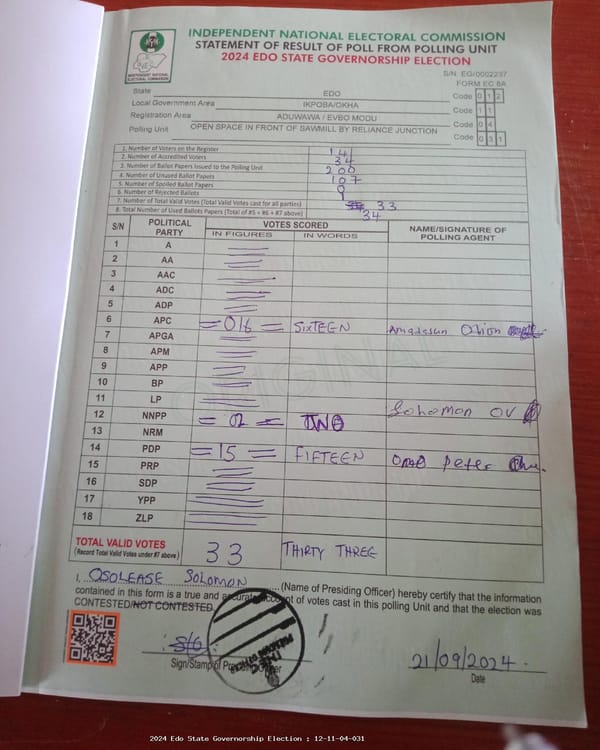 INDEPENDENT NATIONAL ELECTORAL COMMISSION
STATEMENT OF RESULT OF POLL FROM POLLING UNIT
2024 EDO STATE GOVERNORSHIP ELECTION
INEC
INDEPENDENT NATIONAL ELECTORAL COMMISSION
S/N: EG/0002237
FORM EC 8A
State EDO Code 0 1 2
Local Government Area IKPOBA/OKHA Code 1 1
Registration Area ADUWAWA / EVBO MODU Code 0 4
Polling Unit OPEN SPACE IN FRONT OF SAWMILL BY RELIANCE JUNCTION Code 0 3 1
1. Number of Voters on the Register 141
2. Number of Accredited Voters 34
3. Number of Ballot Papers Issued to the Polling Unit 200
4. Number of Unused Ballot Papers 107
5. Number of Spoiled Ballot Papers 0
6. Number of Rejected Ballots 1
7. Number of Total Valid Votes (Total Valid Votes cast for all parties) 33
8. Total Number of Used Ballots Papers (Total of #5 + #6 + #7 above) 34
S/N POLITICAL PARTY VOTES SCORED NAME/SIGNATURE OF POLLING AGENT
IN FIGURES IN WORDS
1 A
2 AA
3 AAC
4 ADC
5 ADP
6 APC =016= SIXTEEN
7 APGA
8 APM
9 APP
10 BP
11 LP Solomon OV
12 NNPP = 02 = TWO
13 NRM
14 PDP =15= FIFTEEN
15 PRP Peter
16 SDP
17 YPP
18 ZLP
TOTAL VALID VOTES 33 THIRTY THREE
(Record Total Valid Votes under #7 above)
I, OSOLEASE SOLOMON (Name of Presiding Officer) hereby certify that the information
contained in this form is a true and accurate account of votes cast in this polling Unit and that the election was
CONTESTED/NOT CONTESTED
Sign/Stamp of Presiding Officer
21/09/2024
Date
2024 Edo State Governorship Election : 12-11-04-031